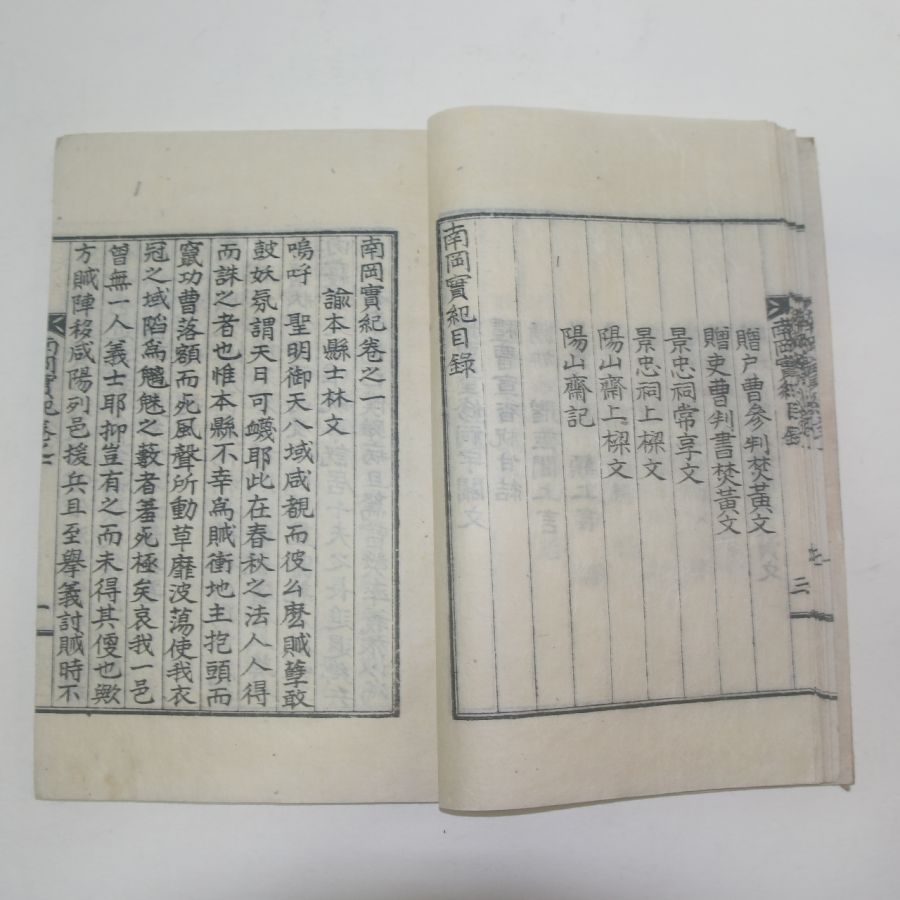 贈户曹參判焚黃文
贈吏曹判書焚黃文
景忠祠常享文
景忠祠上樑文
陽山齋上樑文
陽山齋記
南岡實紀目錄
南岡實紀目錄
三
南岡實紀卷之一
諭本縣士林文
嗚呼聖明御天八域咸覩而彼幺麽賊孽敢
鼓妖氛謂天日可衊耶此在春秋之法人人得
而誅之者也惟本縣不幸爲賊衝地主抱頭而
竄功曹落額而死風聲所動草靡波蕩使我衣
冠之域陷爲魑魅之藪者羞死極矣哀我一邑
曾無一人義士耶抑豈有之而未得其便也歟
方賊陣移咸陽列邑援兵且至擧義討賊時不
一